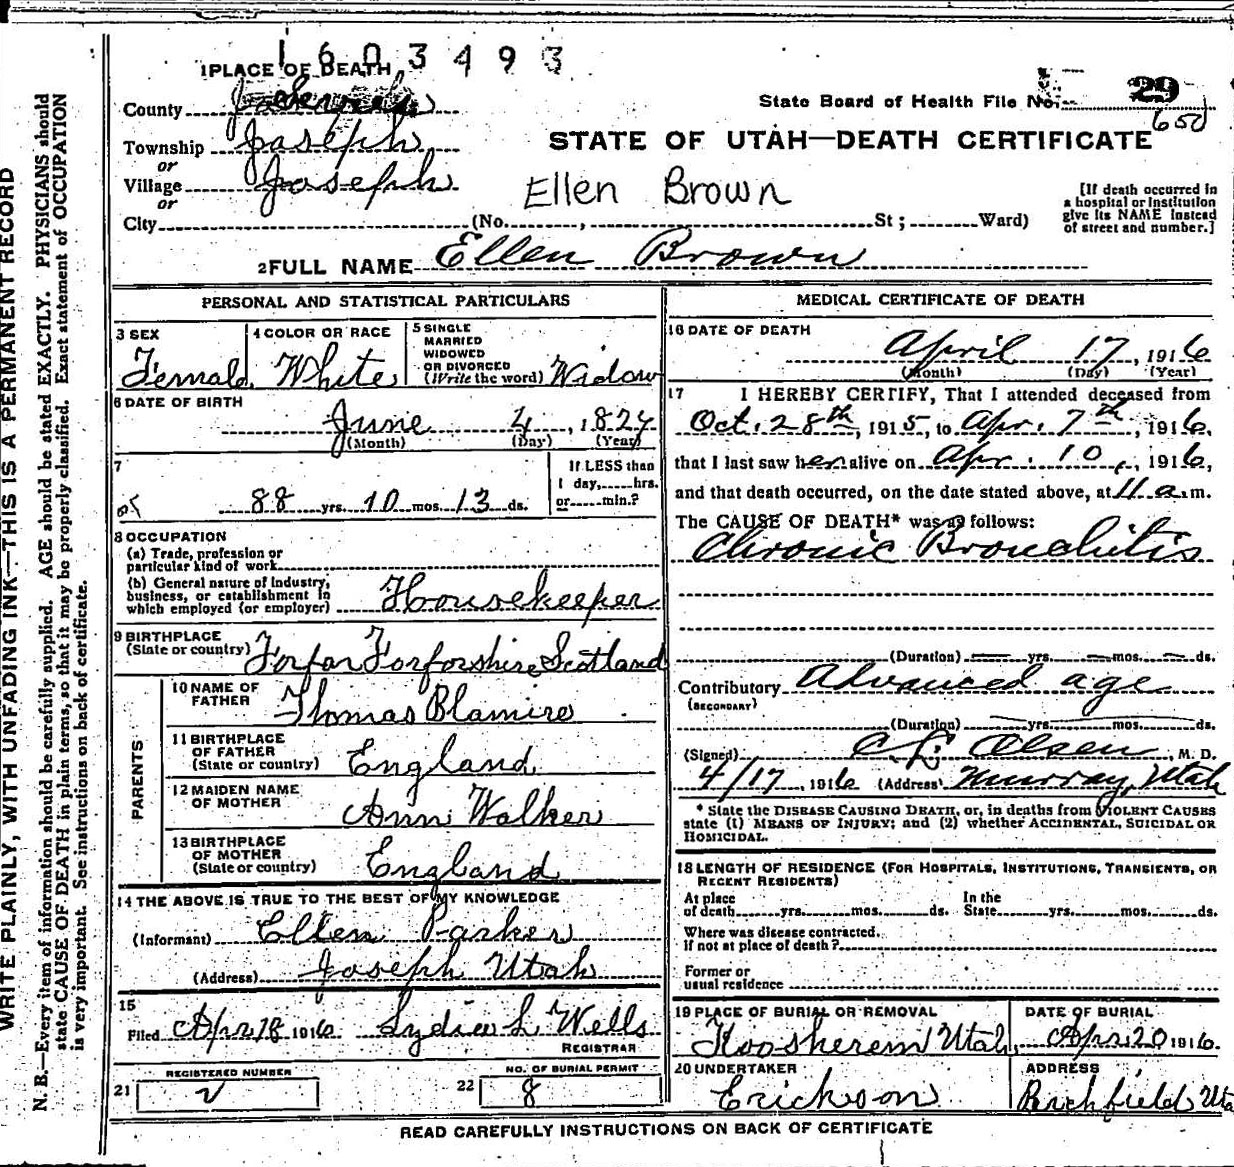 1603493
1 PLACE OF DEATH
County
State Board of Health File No. 29
650
Township Joseph
or
Village Joseph
or
City (No. , St ; Ward)
STATE OF UTAH—DEATH CERTIFICATE
Ellen Brown
[If death occurred in
a hospital or institution
give its NAME instead
of street and number.]
2 FULL NAME Ellen Brown
PERSONAL AND STATISTICAL PARTICULARS
3 SEX
Female
4 COLOR OR RACE
White
5 SINGLE
MARRIED
WIDOWED
OR DIVORCED
(Write the word) Widow
6 DATE OF BIRTH
June 4, 1827
(Month) (Day) (Year)
7
88 yrs. 10 mos. 13 ds.
If LESS than
1 day, hrs.
or min.?
8 OCCUPATION
(a) Trade, profession or
particular kind of work
(b) General nature of industry,
business, or establishment in
which employed (or employer) Housekeeper
9 BIRTHPLACE
(State or country) Forfar Forforshire Scotland
PARENTS
10 NAME OF
FATHER Thomas Blamire
11 BIRTHPLACE
OF FATHER
(State or country) England
12 MAIDEN NAME
OF MOTHER Ann Walker
13 BIRTHPLACE
OF MOTHER
(State or country) England
14 THE ABOVE IS TRUE TO THE BEST OF MY KNOWLEDGE
(Informant) Ellen Parker
(Address) Joseph Utah
15
Filed Apr 18 1916 Lydia L Wells
REGISTRAR
REGISTERED NUMBER
21
NO. OF BURIAL PERMIT
22 8
MEDICAL CERTIFICATE OF DEATH
16 DATE OF DEATH
April 17, 1916
(Month) (Day) (Year)
17 I HEREBY CERTIFY, That I attended deceased from
Oct. 28th, 1915, to Apr. 7th, 1916,
that I last saw her alive on Apr. 10, 1916,
and that death occurred, on the date stated above, at 11 a.m.
The CAUSE OF DEATH* was as follows:
Chronic Bronchitis
(Duration) yrs. mos. ds.
Contributory Advanced age
(SECONDARY)
(Duration) yrs. mos. ds.
(Signed) C. L. Olsen, M. D.
4/17, 1916 (Address) Murray, Utah
* State the DISEASE CAUSING DEATH, or, in deaths from VIOLENT CAUSES
state (1) MEANS OF INJURY; and (2) whether ACCIDENTAL, SUICIDAL OR
HOMICIDAL.
18 LENGTH OF RESIDENCE (FOR HOSPITALS, INSTITUTIONS, TRANSIENTS, OR
RECENT RESIDENTS)
At place
of death yrs. mos. ds.
In the
State yrs. mos. ds.
Where was disease contracted.
if not at place of death?
Former or
usual residence
19 PLACE OF BURIAL OR REMOVAL
Koosherem Utah
DATE OF BURIAL
Apr. 20 1916.
20 UNDERTAKER
Erickson
ADDRESS
Richfield Uta
READ CAREFULLY INSTRUCTIONS ON BACK OF CERTIFICATE
WRITE PLAINLY, WITH UNFADING INK—THIS IS A PERMANENT RECORD
N. B.—Every item of information should be carefully supplied. AGE should be stated EXACTLY. PHYSICIANS should
state CAUSE OF DEATH in plain terms, so that it may be properly classified. Exact statement of OCCUPATION
is very important. See instructions on back of certificate.